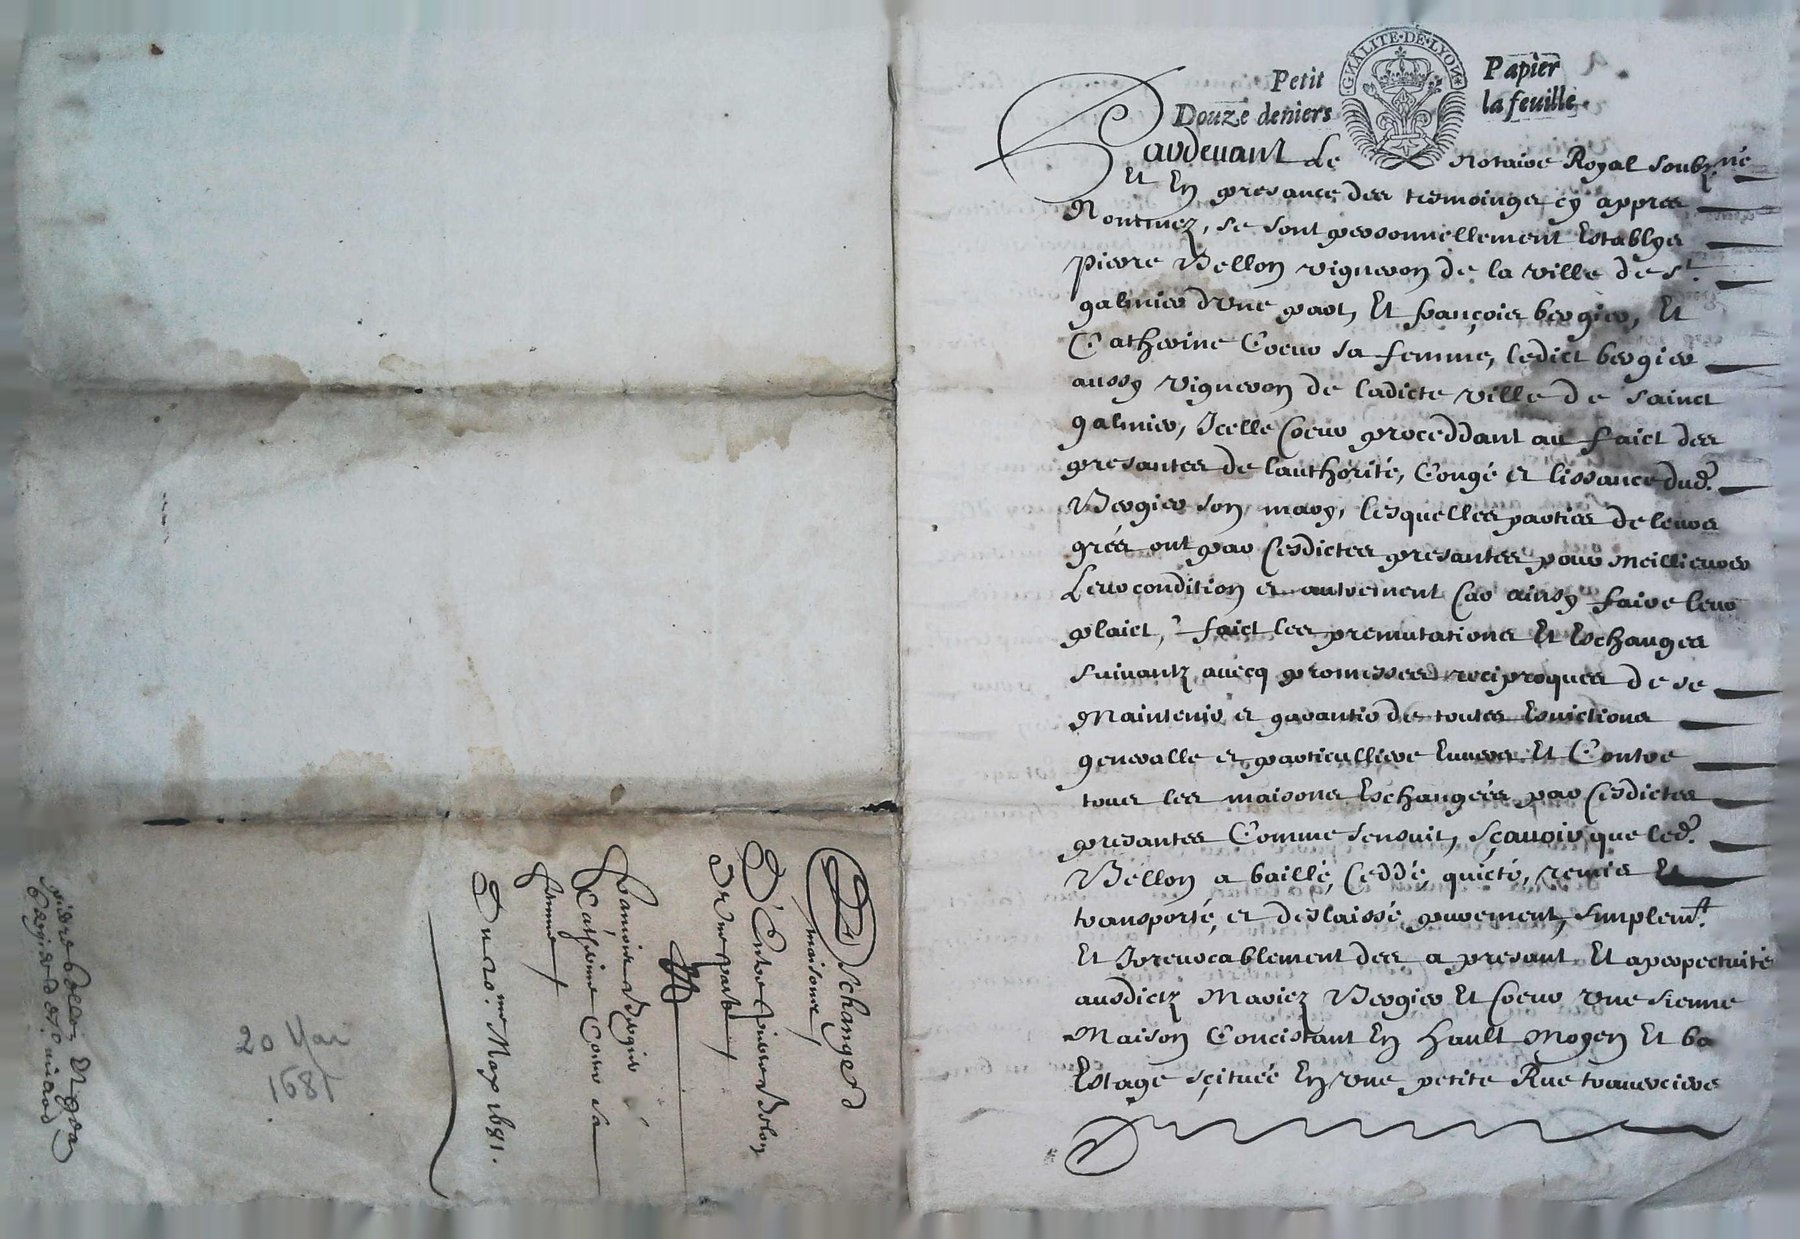 GNALITE·DE·LYON
Petit Papier
Douze deniers la feuille.
Pardevant Le Notaire Royal soubz.né
Et En presance des tesmoings cy appres
Nommez, se sont personnellement Establys
Pierre Bellon vigneron de la ville de St.
galmier d'Une part, Et françois bergier, Et
Catherine Coeur sa femme, ledict bergier
aussy vigneron de ladicte ville de sainct
galmier, Icelle Coeur proceddant au faict des
presantes de lauthorité, Congé et lissance dud.
Bergier son mary, lesquelles parties de leurs
gréz ont par Cesdictes presantes pour meillieurer
Leur condition et autrement Car ainsy faire leur
plaict, faict les premutations Et Eschanges
suivantz avecq promesses reciproques de se
Maintenir et garantir de toutes Esvictions
generalle et particulliere Envers Et Contre
tous les maisons Eschangées par Cesdictes
presantes Comme sensuit, sçavoir que led.
Bellon a baillé, Ceddé, quicté, remis Et
transporté, et deslaissé, purement, simplemt.
Et Irrevocablement des a presant Et aperpectuité
ausdictz Mariez Bergier Et Coeur Une sienne
Maison Concistant En hault Moyen Et bas
Estage scituée En Une petite Rue traverciere
Eschanges de
maisons
D'Entre pierre Bellon
D'Une part
Et
François Bergier
Catherine Coeur sa
femme
Du 20.me May 1681.
20 Mai
1681
pierre bellon